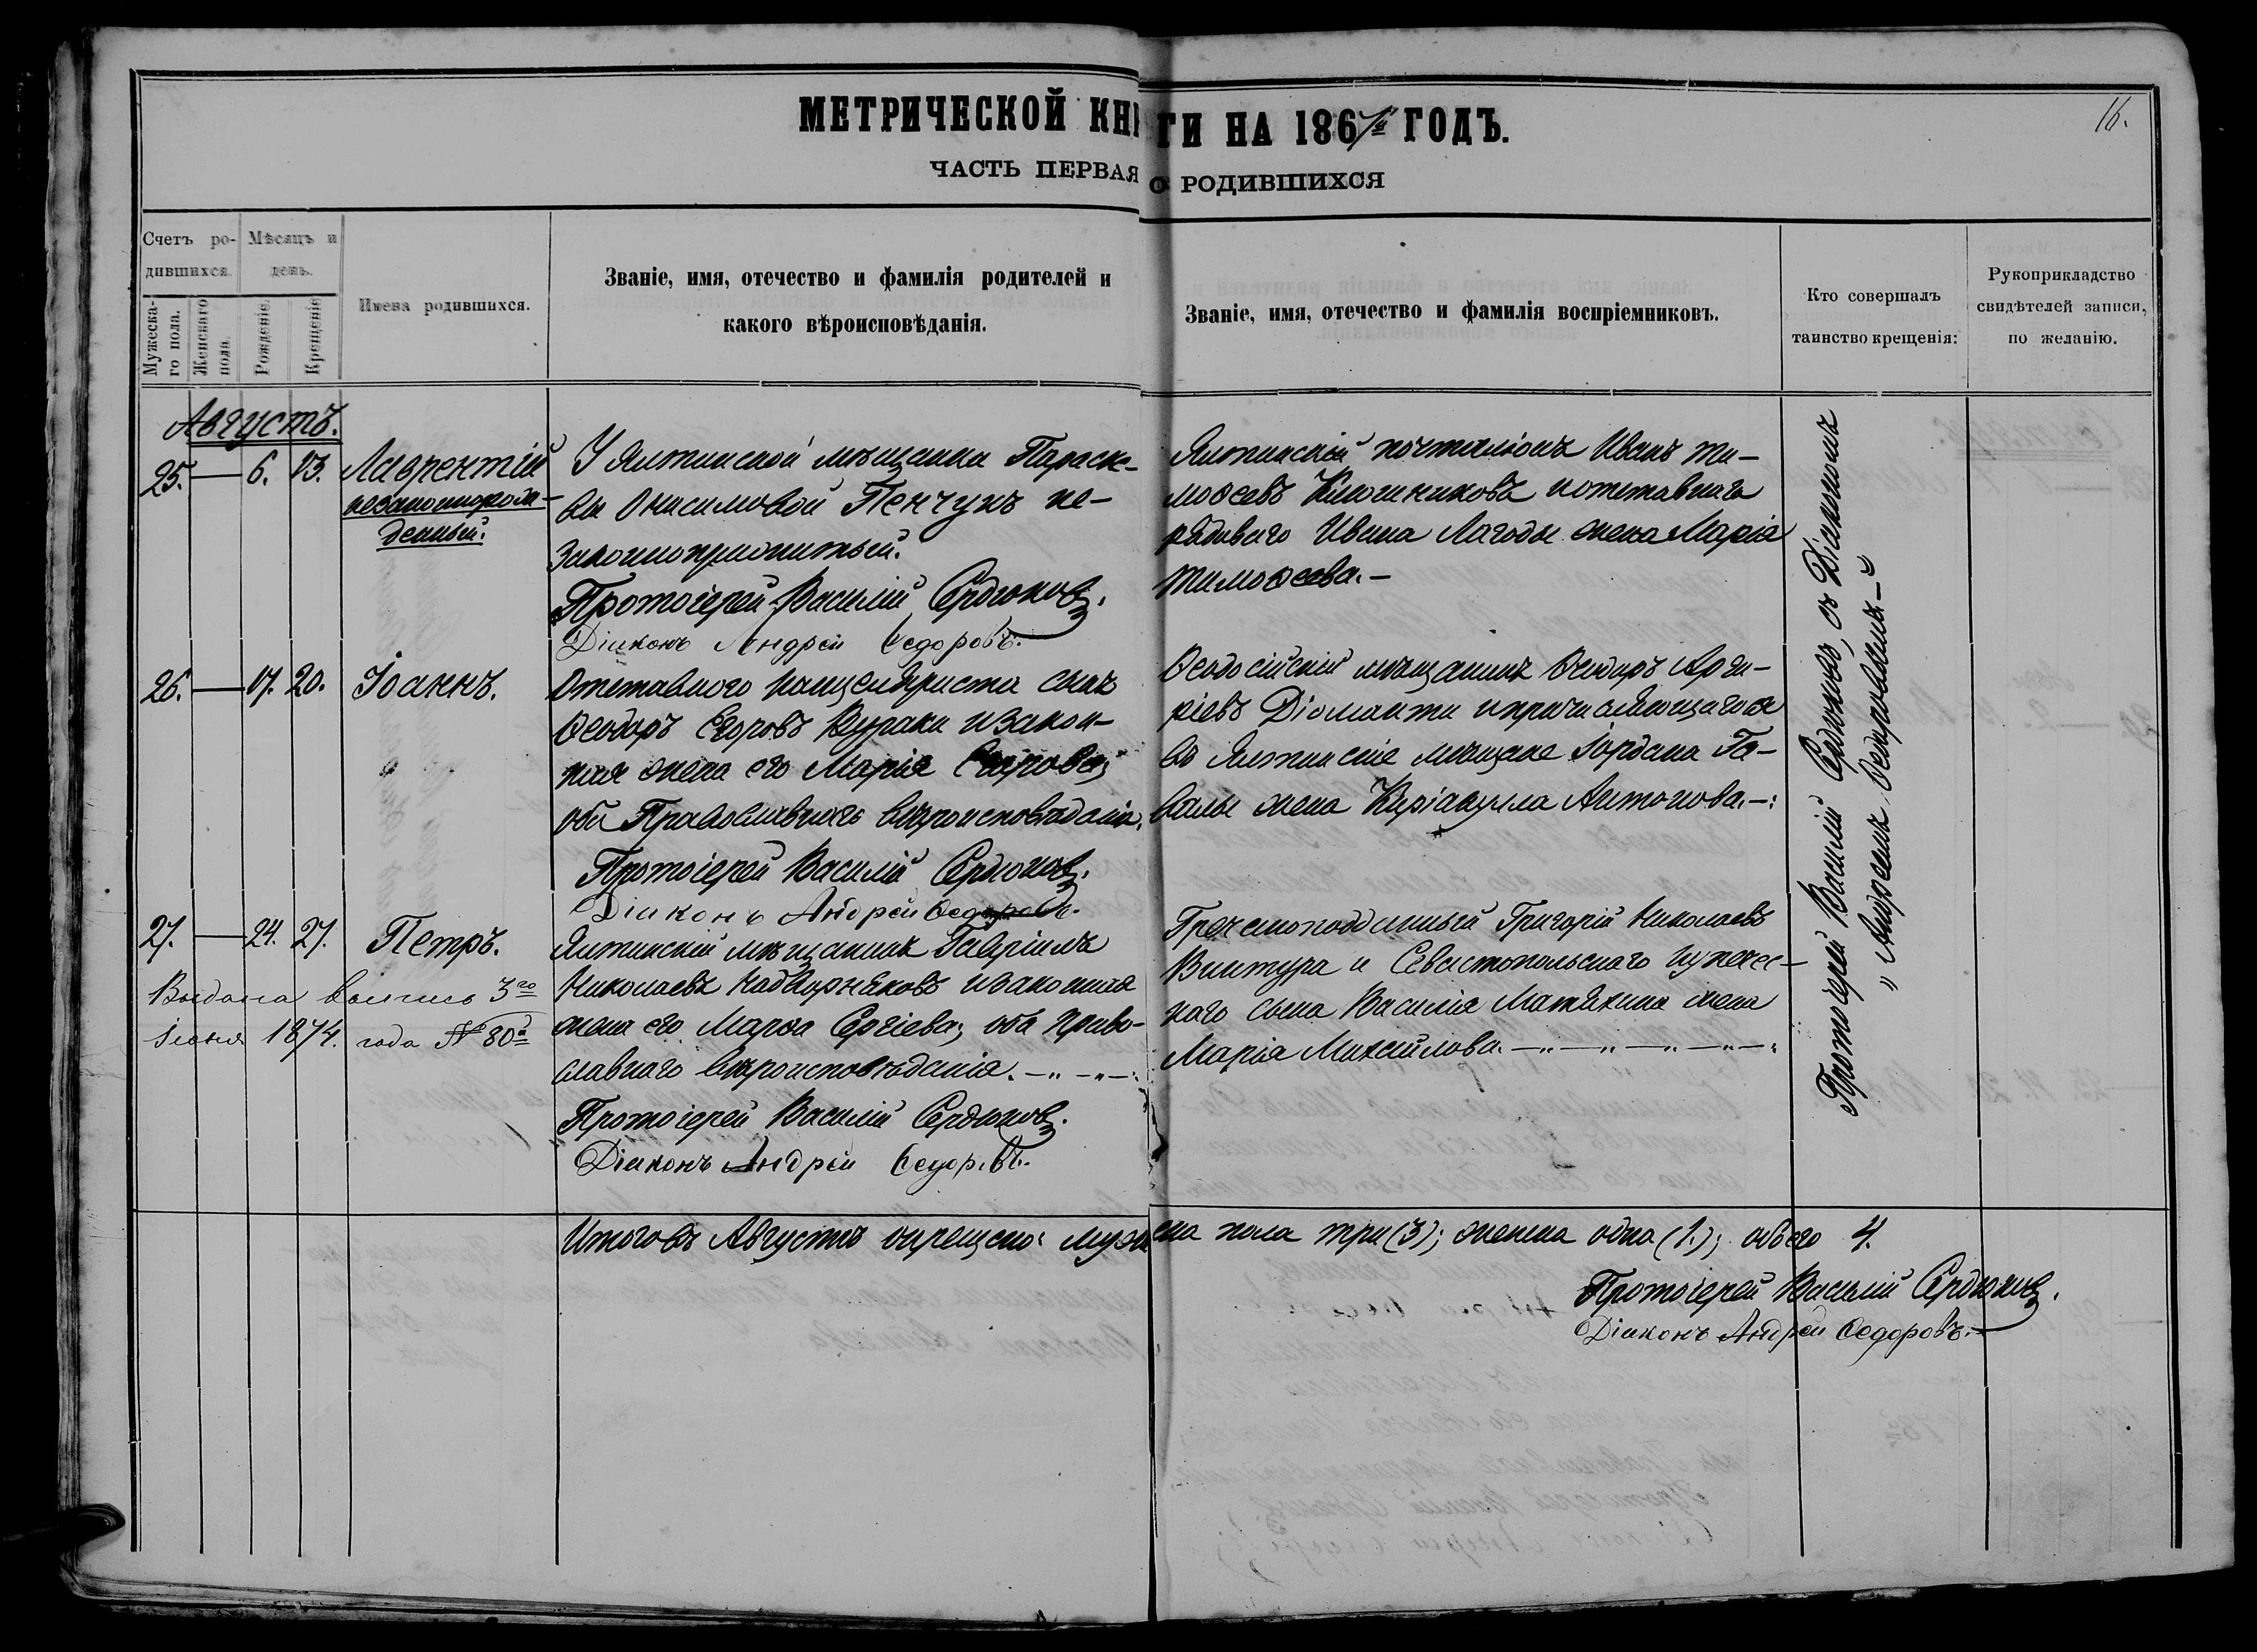 МЕТРИЧЕСКОЙ КНИГИ НА 1867й ГОДЪ.
16.
ЧАСТЬ ПЕРВАЯ О РОДИВШИХСЯ
Счетъ ро-
дившихся.
Мѣсяцъ и
день.
Мужеска-
го пола.
Женскаго
пола.
Рожденіе.
Крещеніе.
Имена родившихся.
Званіе, имя, отечество и фамилія родителей и
какого вѣроисповѣданія.
Званіе, имя, отечество и фамилія воспріемниковъ.
Кто совершалъ
таинство крещенія:
Рукоприкладство
свидѣтелей записи,
по желанію.
Августъ.
25. — 6. 13. Лаврентій
незаконнорож-
денный.
У Ялтинской мѣщанки Параске-
вы Онисимовой Пенчукъ не-
законноприжитый.
Протоіерей Василій Сердюковъ.
Діаконъ Андрей Ѳедоровъ.
Ялтинскій почталіонъ Иванъ Ти-
моѳеевъ Ключниковъ и отставнаго
рядоваго Ивана Лагоды жена Марія
Тимоѳеева.—
26. — 17. 20. Іоаннъ.
Отставнаго канцеляриста сынъ
Ѳеодоръ Егоровъ Кураки и закон-
ная жена его Марія
оба Православнаго вѣроисповѣданія.
Протоіерей Василій Сердюковъ.
Діаконъ Андрей Ѳедоровъ.
Ѳеодосійскій мѣщанинъ Ѳеодоръ Арги-
ріевъ Діаманти и причисляющагося
въ Ялтинскіе мѣщане Іордана Га-
валы жена Киріакулла Антонова.—:
27. — 24. 27. Петръ.
Выдана выпись 3го
іюня 1874. года № 80й
Ялтинскій мѣщанинъ Гавріилъ
Николаевъ Надворняковъ и законная
жена его Марѳа Сергіева; оба право-
славнаго вѣроисповѣданія.—"—"—:
Протоіерей Василій Сердюковъ.
Діаконъ Андрей Ѳедоровъ.
Греческоподданный Григорій Николаевъ
Винтура и Севастопольскаго купечес-
каго сына Василія Матяхина жена
Марія Михайлова.—"—"—"—"—:
Протоіерей Василій Сердюковъ, съ Діакономъ
" Андреемъ Ѳедоровымъ—"
Итого въ Августѣ окрещено: мужеска пола три (3); женска одна (1.); обоего 4.
Протоіерей Василій Сердюковъ.
Діаконъ Андрей Ѳедоровъ.